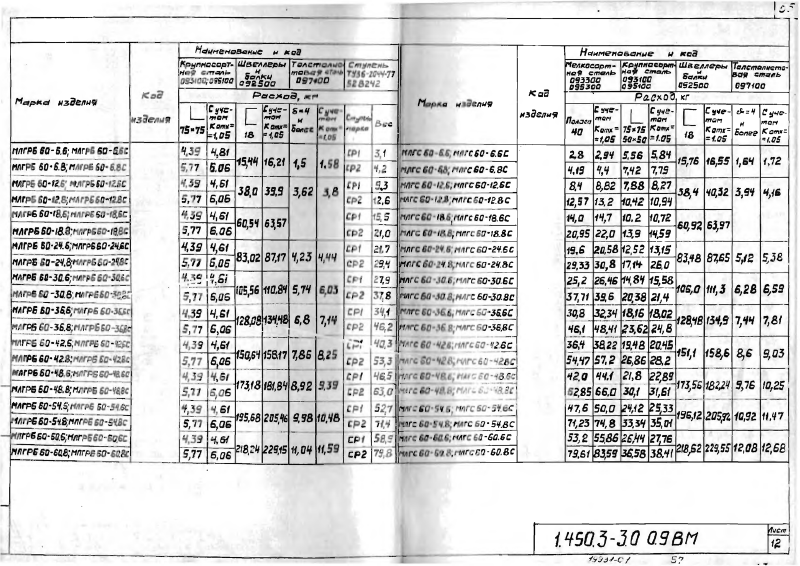 Марка изделия
Код изделия
Наименование и код
Крупносорт-ная сталь 093100; 095100
Швеллеры и балки 092500
Толстолисто-вая сталь 097100
Ступень ТУ36-2044-77 528242
Расход, кг
75×75
С уче-том Котх= =1,05
18
С уче-том Котх= =1,05
δ=4 и более
С уче-том Котх= =1,05
Ступень марка
Вес
МЛГРБ 60-6.6; МЛГРБ 60-6.6С 4,39 4,61 15,44 16,21 1,5 1,58 СР1 3,1
МЛГРБ 60-6.8; МЛГРБ 60-6.8С 5,77 6,06 СР2 4,2
МЛГРБ 60-12.6; МЛГРБ 60-12.6С 4,39 4,61 38,0 39,9 3,62 3,8 СР1 9,3
МЛГРБ 60-12.8; МЛГРБ 60-12.8С 5,77 6,06 СР2 12,6
МЛГРБ 60-18.6; МЛГРБ 60-18.6С 4,39 4,61 60,54 63,57 СР1 15,5
МЛГРБ 60-18.8; МЛГРБ 60-18.8С 5,77 6,06 СР2 21,0
МЛГРБ 60-24.6; МЛГРБ 60-24.6С 4,39 4,61 83,02 87,17 4,23 4,44 СР1 21,7
МЛГРБ 60-24.8; МЛГРБ 60-24.8С 5,77 6,06 СР2 29,4
МЛГРБ 60-30.6; МЛГРБ 60-30.6С 4,39 4,61 105,56 110,84 5,74 6,03 СР1 27,9
МЛГРБ 60-30.8; МЛГРБ 60-30.8С 5,77 6,06 СР2 37,8
МЛГРБ 60-36.6; МЛГРБ 60-36.6С 4,39 4,61 128,08 134,48 6,8 7,14 СР1 34,1
МЛГРБ 60-36.8; МЛГРБ 60-36.8С 5,77 6,06 СР2 46,2
МЛГРБ 60-42.6; МЛГРБ 60-42.6С 4,39 4,61 150,64 158,17 7,86 8,25 СР1 40,3
МЛГРБ 60-42.8; МЛГРБ 60-42.8С 5,77 6,06 СР2 53,3
МЛГРБ 60-48.6; МЛГРБ 60-48.6С 4,39 4,61 173,18 181,84 8,92 9,39 СР1 46,5
МЛГРБ 60-48.8; МЛГРБ 60-48.8С 5,77 6,06 СР2 63,0
МЛГРБ 60-54.6; МЛГРБ 60-54.6С 4,39 4,61 195,68 205,46 9,98 10,48 СР1 52,7
МЛГРБ 60-54.8; МЛГРБ 60-54.8С 5,77 6,06 СР2 71,4
МЛГРБ 60-60.6; МЛГРБ 60-60.6С 4,39 4,61 218,24 229,15 11,04 11,59 СР1 58,9
МЛГРБ 60-60.8; МЛГРБ 60-60.8С 5,77 6,06 СР2 79,8
Марка изделия
Код изделия
Наименование и код
Мелкосорт-ная сталь 093300 095300
Крупносорт-ная сталь 093100 095100
Швеллеры и балки 092500
Толстолисто-вая сталь 097100
Расход, кг
Полоса 40
С уче-том Котх= =1,05
75×75 50×50
С уче-том Котх= =1,05
18
С уче-том Котх= =1,05
δ=4 и более
С уче-том Котх= =1,05
МЛГС 60-6.6; МЛГС 60-6.6С 2,8 2,94 5,56 5,84 15,76 16,55 1,64 1,72
МЛГС 60-6.8; МЛГС 60-6.8С 4,19 4,4 7,42 7,79
МЛГС 60-12.6; МЛГС 60-12.6С 8,4 8,82 7,88 8,27 38,4 40,32 3,94 4,16
МЛГС 60-12.8; МЛГС 60-12.8С 12,57 13,2 10,42 10,94
МЛГС 60-18.6; МЛГС 60-18.6С 14,0 14,7 10,2 10,72 60,92 63,97
МЛГС 60-18.8; МЛГС 60-18.8С 20,95 22,0 13,9 14,59
МЛГС 60-24.6; МЛГС 60-24.6С 19,6 20,58 12,52 13,15 83,48 87,65 5,12 5,38
МЛГС 60-24.8; МЛГС 60-24.8С 29,33 30,8 17,14 26,0
МЛГС 60-30.6; МЛГС 60-30.6С 25,2 26,46 14,84 15,58 106,0 111,3 6,28 6,59
МЛГС 60-30.8; МЛГС 60-30.8С 37,71 39,6 20,38 21,4
МЛГС 60-36.6; МЛГС 60-36.6С 30,8 32,34 18,16 18,02 128,48 134,9 7,44 7,81
МЛГС 60-36.8; МЛГС 60-36.8С 46,1 48,41 23,62 24,8
МЛГС 60-42.6; МЛГС 60-42.6С 36,4 38,22 19,48 20,45 151,1 158,6 8,6 9,03
МЛГС 60-42.8; МЛГС 60-42.8С 54,47 57,2 26,86 28,2
МЛГС 60-48.6; МЛГС 60-48.6С 42,0 44,1 21,8 22,89 173,56 182,24 9,76 10,25
МЛГС 60-48.8; МЛГС 60-48.8С 62,85 66,0 30,1 31,61
МЛГС 60-54.6; МЛГС 60-54.6С 47,6 50,0 24,12 25,33 196,12 205,92 10,92 11,47
МЛГС 60-54.8; МЛГС 60-54.8С 71,23 74,8 33,34 35,01
МЛГС 60-60.6; МЛГС 60-60.6С 53,2 55,86 26,44 27,76 218,62 229,55 12,08 12,68
МЛГС 60-60.8; МЛГС 60-60.8С 79,61 83,59 36,58 38,41
1.450.3-3.0 09ВМ
Лист
12
57